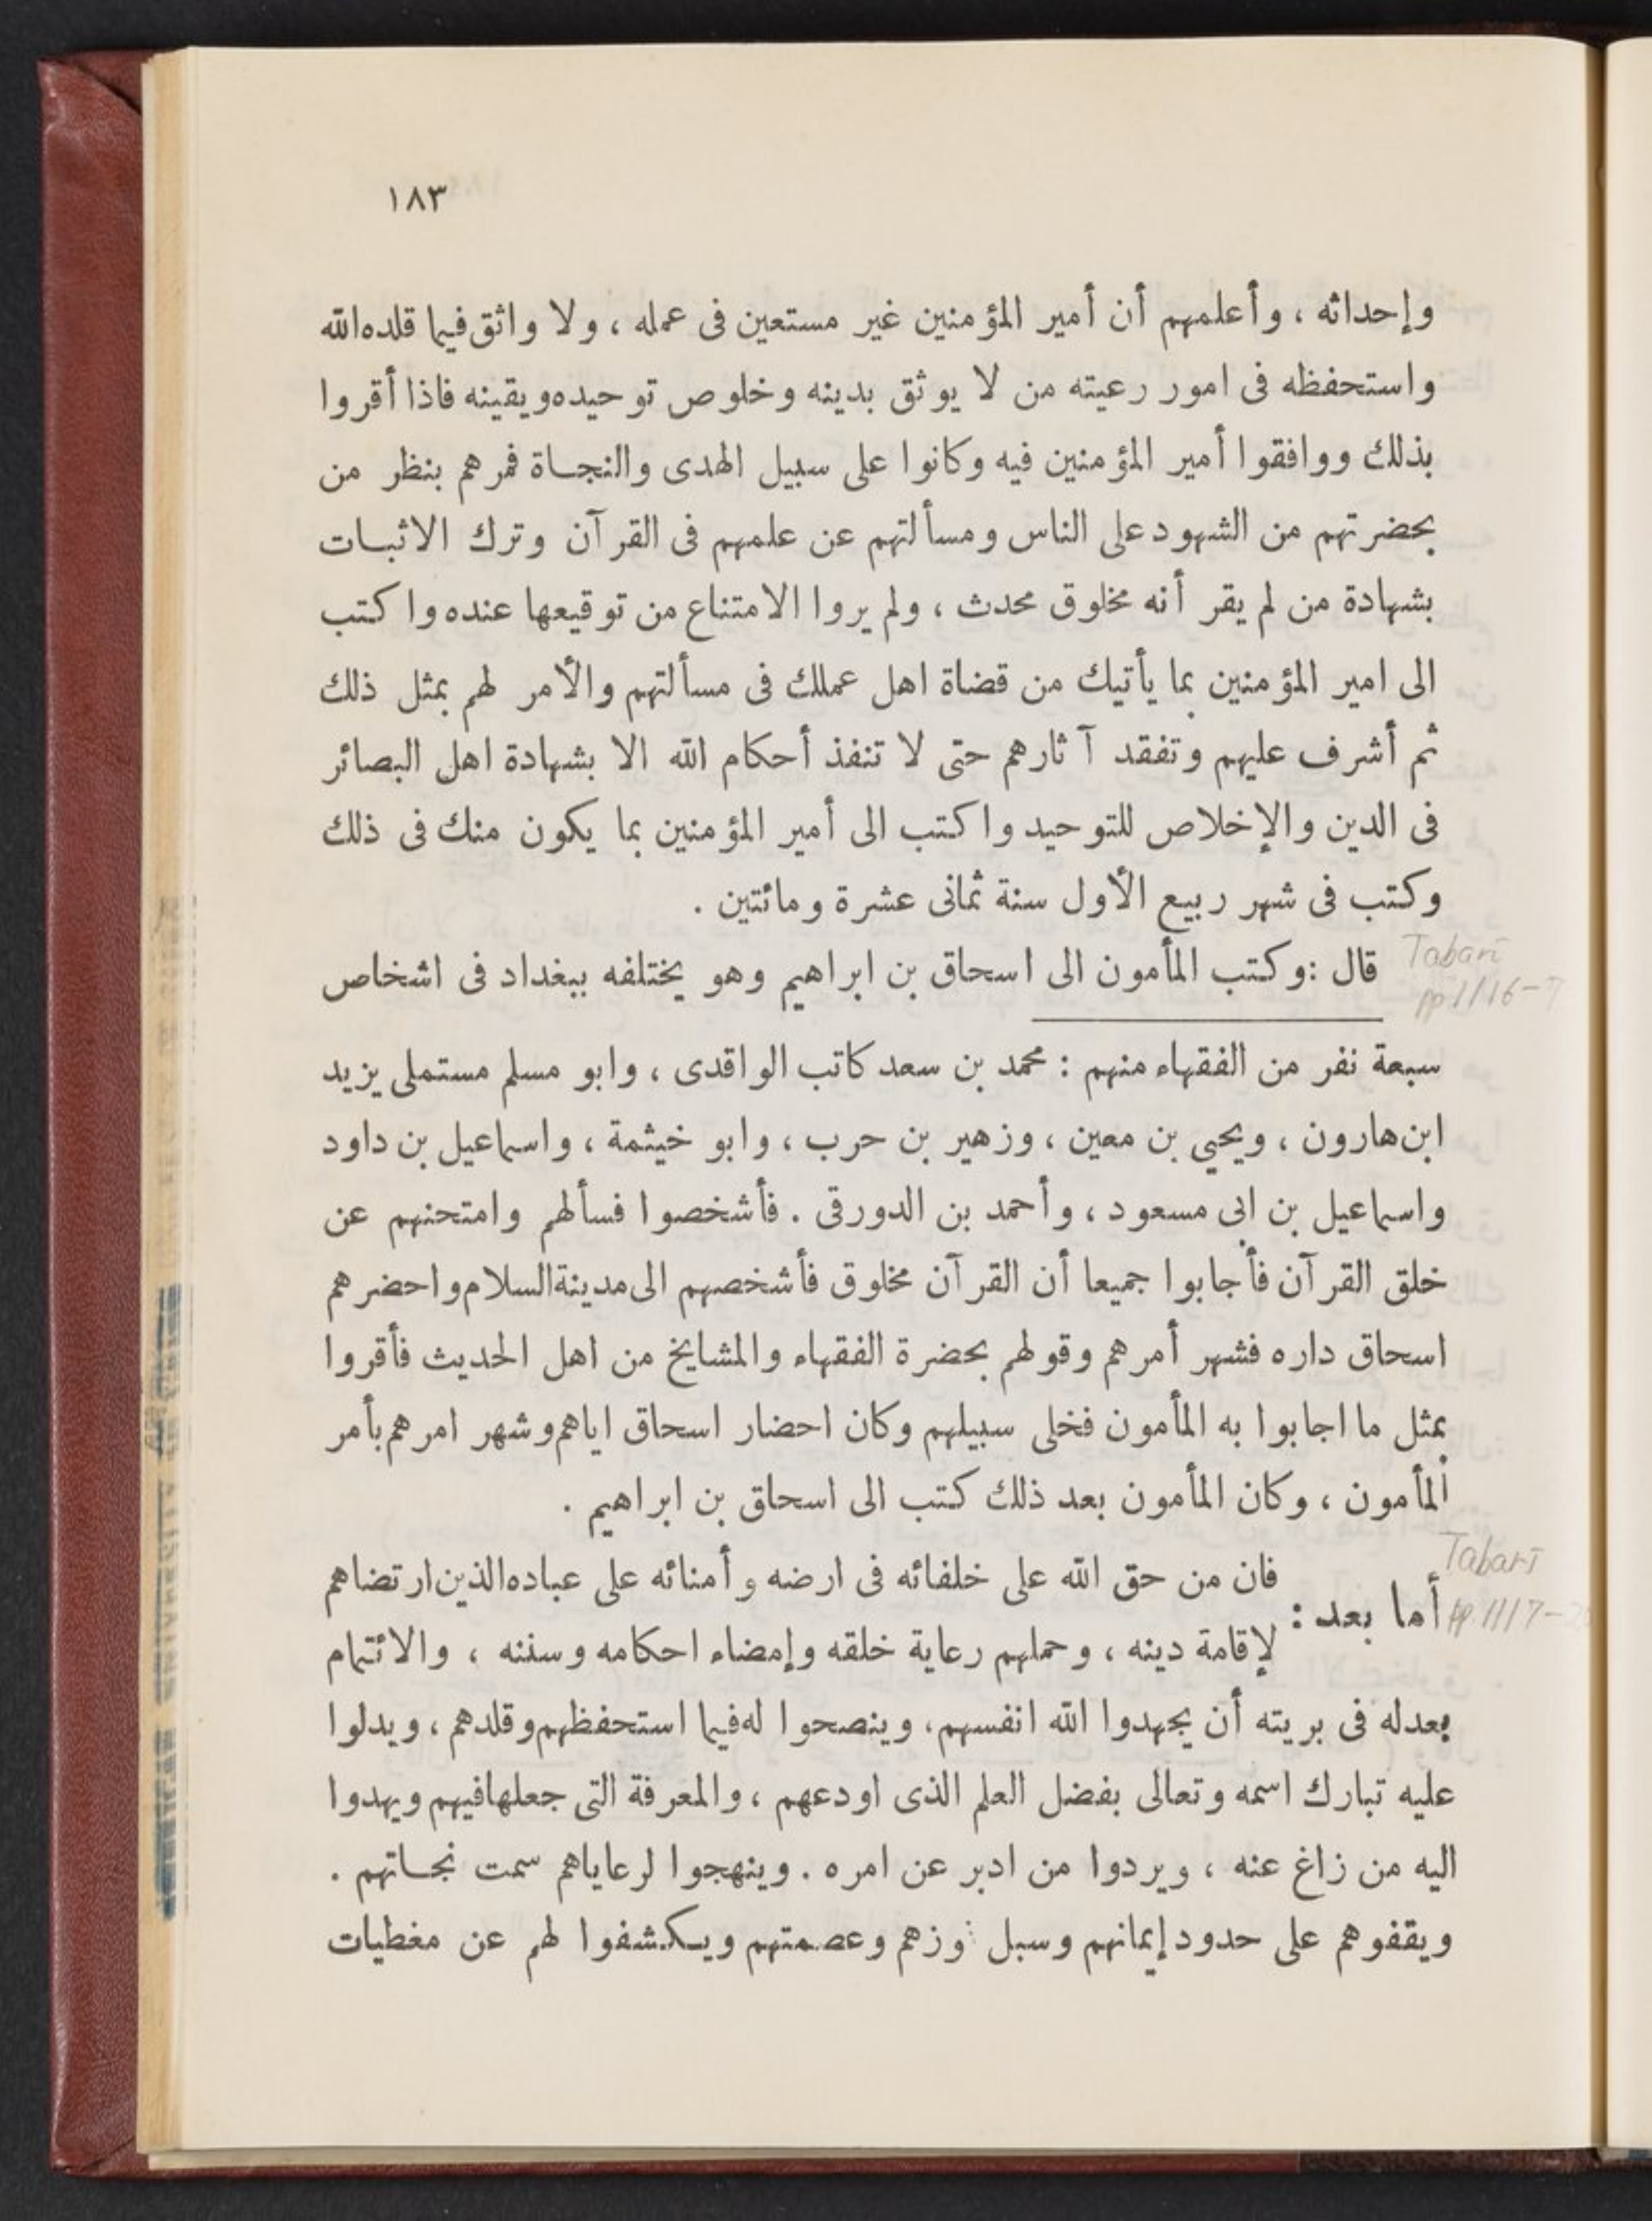 ١٨٣
وإحداثه ، وأعلمهم أن أمير المؤمنين غير مستعين فى عمله ، ولا واثق فيما قلده الله
واستحفظه فى امور رعيته من لا يوثق بدينه وخلوص توحيده ويقينه فاذا أقروا
بذلك ووافقوا أمير المؤمنين فيه وكانوا على سبيل الهدى والنجاة فمرهم بنظر من
بحضرتهم من الشهود على الناس ومسألتهم عن علمهم فى القرآن وترك الاثبات
بشهادة من لم يقر أنه مخلوق محدث ، ولم يروا الامتناع من توقيعها عنده واكتب
الى امير المؤمنين بما يأتيك من قضاة اهل عمللك فى مسألتهم والأمر لهم بمثل ذلك
ثم أشرف عليهم وتفقد آثارهم حتى لا تنفذ أحكام الله الا بشهادة اهل البصائر
فى الدين والإخلاص للتوحيد واكتب الى أمير المؤمنين بما يكون منك فى ذلك
وكتب فى شهر ربيع الأول سنة ثمانى عشرة ومائتين .
Tabarī
pp 1116-7
قال : وكتب المأمون الى اسحاق بن ابراهيم وهو يختلفه ببغداد فى اشخاص
سبعة نفر من الفقهاء منهم : محمد بن سعد كاتب الواقدى ، وابو مسلم مستملى يزيد
ابن هارون ، ويحيى بن معين ، وزهير بن حرب ، وابو خيثمة ، واسماعيل بن داود
واسماعيل بن ابى مسعود ، وأحمد بن الدورقى . فأشخصوا فسألهم وامتحنهم عن
خلق القرآن فأجابوا جميعا أن القرآن مخلوق فأشخصهم الى مدينة السلام واحضرهم
اسحاق داره فشهر أمرهم وقولهم بحضرة الفقهاء والمشايخ من اهل الحديث فأقروا
بمثل ما اجابوا به المأمون فخلى سبيلهم وكان احضار اسحاق اياهم وشهر امرهم بأمر
المأمون ، وكان المأمون بعد ذلك كتب الى اسحاق بن ابراهيم .
Tabarī
pp. 1117-
أما بعد :
فان من حق الله على خلفائه فى ارضه وأمنائه على عباده الذين ارتضاهم
لإقامة دينه ، وحملهم رعاية خلقه وإمضاء احكامه وسننه ، والائتمام
بعدله فى بريته أن يجهدوا الله انفسهم ، وينصحوا له فيما استحفظهم وقلدهم ، ويدلوا
عليه تبارك اسمه وتعالى بفضل العلم الذى اودعهم ، والمعرفة التى جعلها فيهم ويهدوا
اليه من زاغ عنه ، ويردوا من ادبر عن امره . وينهجوا لرعاياهم سمت نجاتهم .
ويقفوهم على حدود إيمانهم وسبل وعصمتهم ويكشفوا لهم عن مغطيات